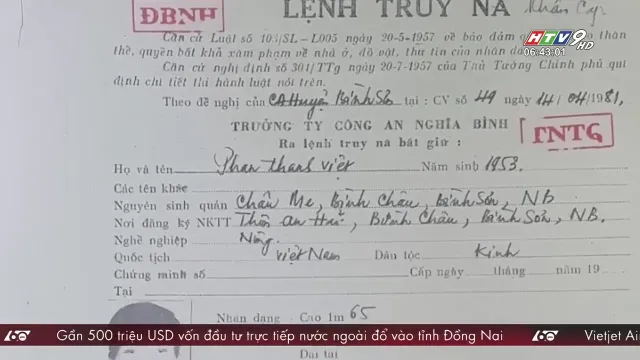 LỆNH TRUY NÃ Khẩn Cấp
ĐBNH
HTV9 HD
06:43:01
Căn cứ Luật số 103/SL-L005 ngày 20-5-1957 về bảo đảm thân
thể, quyền bất khả xâm phạm về nhà ở, đồ vật, thư tín của nhân dân
Căn cứ nghị định số 301/TTg ngày 20-7-1957 của Thủ Tướng Chính phủ qui
định chi tiết thi hành luật nói trên.
Theo đề nghị của CA Huyện Bình Sơn tại : CV số 49 ngày 14/04/1981,
TRƯỞNG TY CÔNG AN NGHĨA BÌNH
TNTG
Ra lệnh truy nã bắt giữ :
Họ và tên Phan thanh việt Năm sinh 1953.
Các tên khác
Nguyên sinh quán Châu Me, Bình Châu, Bình Sơn, NB
Nơi đăng ký NKTT Thôn An Hải, Bình Châu, Bình Sơn, NB.
Nghề nghiệp Nông
Quốc tịch việt Nam Dân tộc Kinh
Chứng minh số Cấp ngày tháng năm 19
Tại
Nhận dạng Cao 1m 65
60 Gần 500 triệu USD vốn đầu tư trực tiếp nước ngoài đổ vào tỉnh Đồng Nai 60 Vietjet Ai
Dái tai